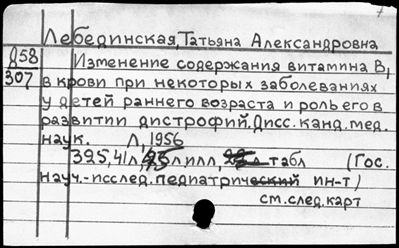 7
Лебединская, Татьяна Александровна
Д58
307
Изменение содержания витамина В₁
в крови при некоторых заболеваниях
у детей раннего возраста и роль его в
развитии дистрофий. Дисс. канд. мед.
наук. Л, 1956
395, 41 л, л илл, табл (Гос.
науч.-исслед. педиатрический ин-т)
см. след. карт